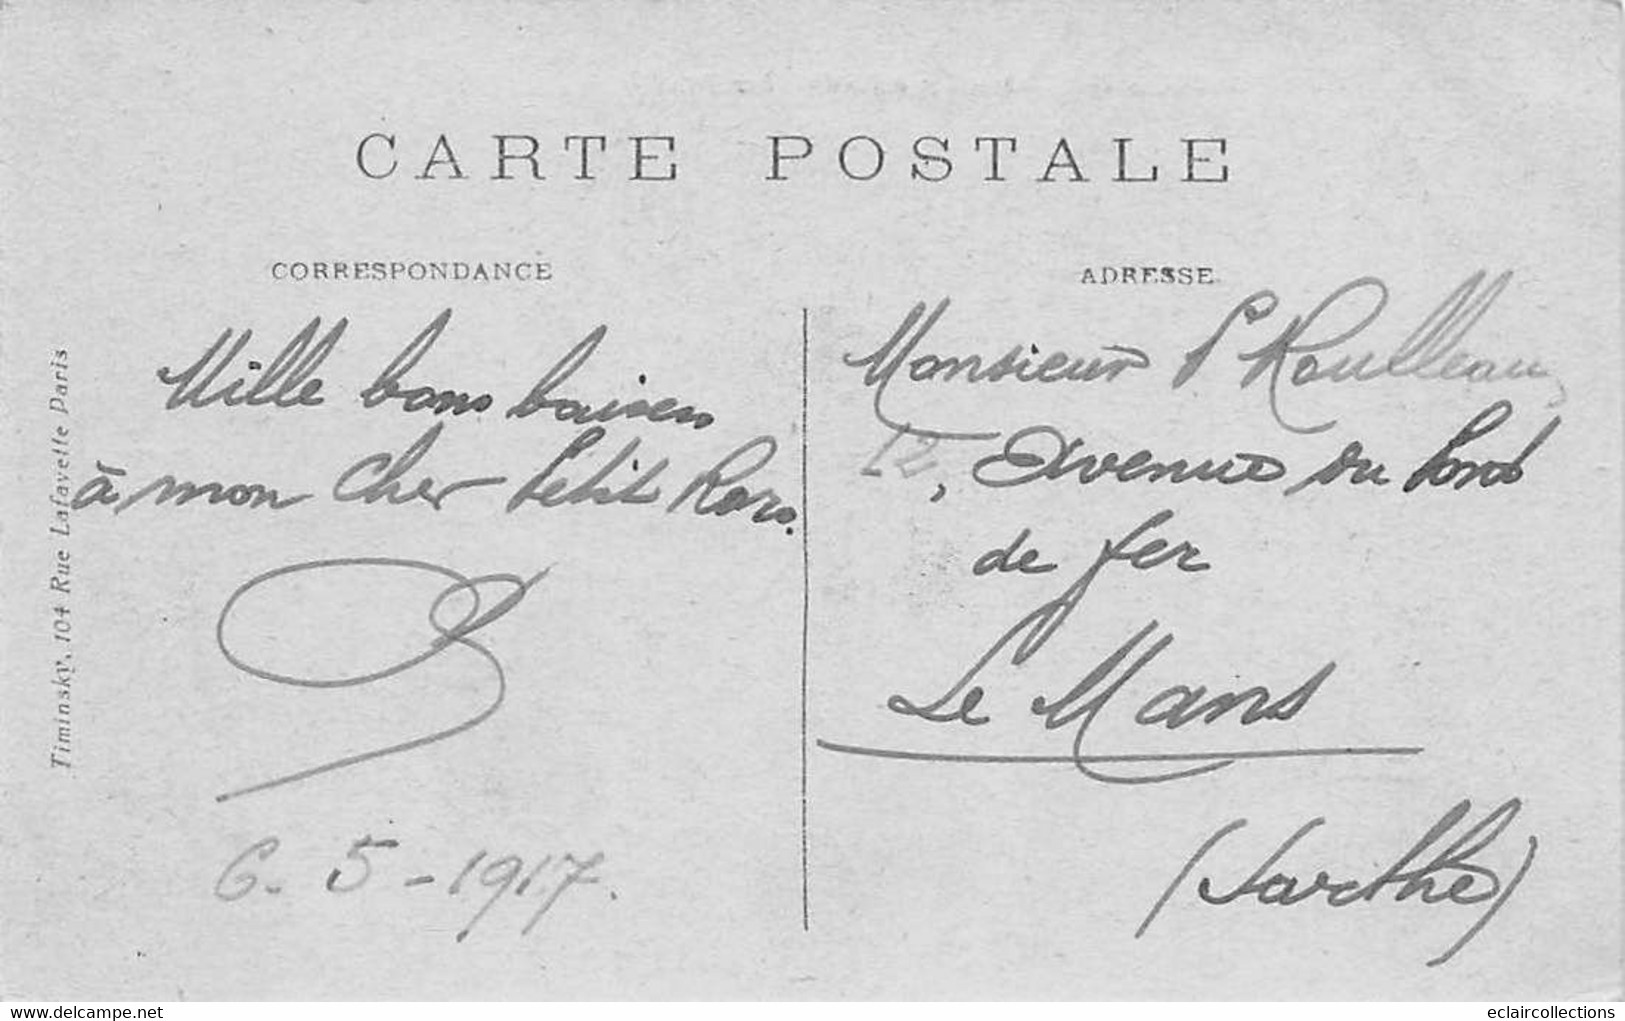 CARTE POSTALE
CORRESPONDANCE
Mille bons baisers
à mon cher Petit
6-5-1917.
ADRESSE
Monsieur P Roulleau
12, Avenue du Pont
de fer
Le Mans
(Sarthe)
Timinsky, 104 Rue Lafayette Paris
www.delcampe.net
eclaircollections